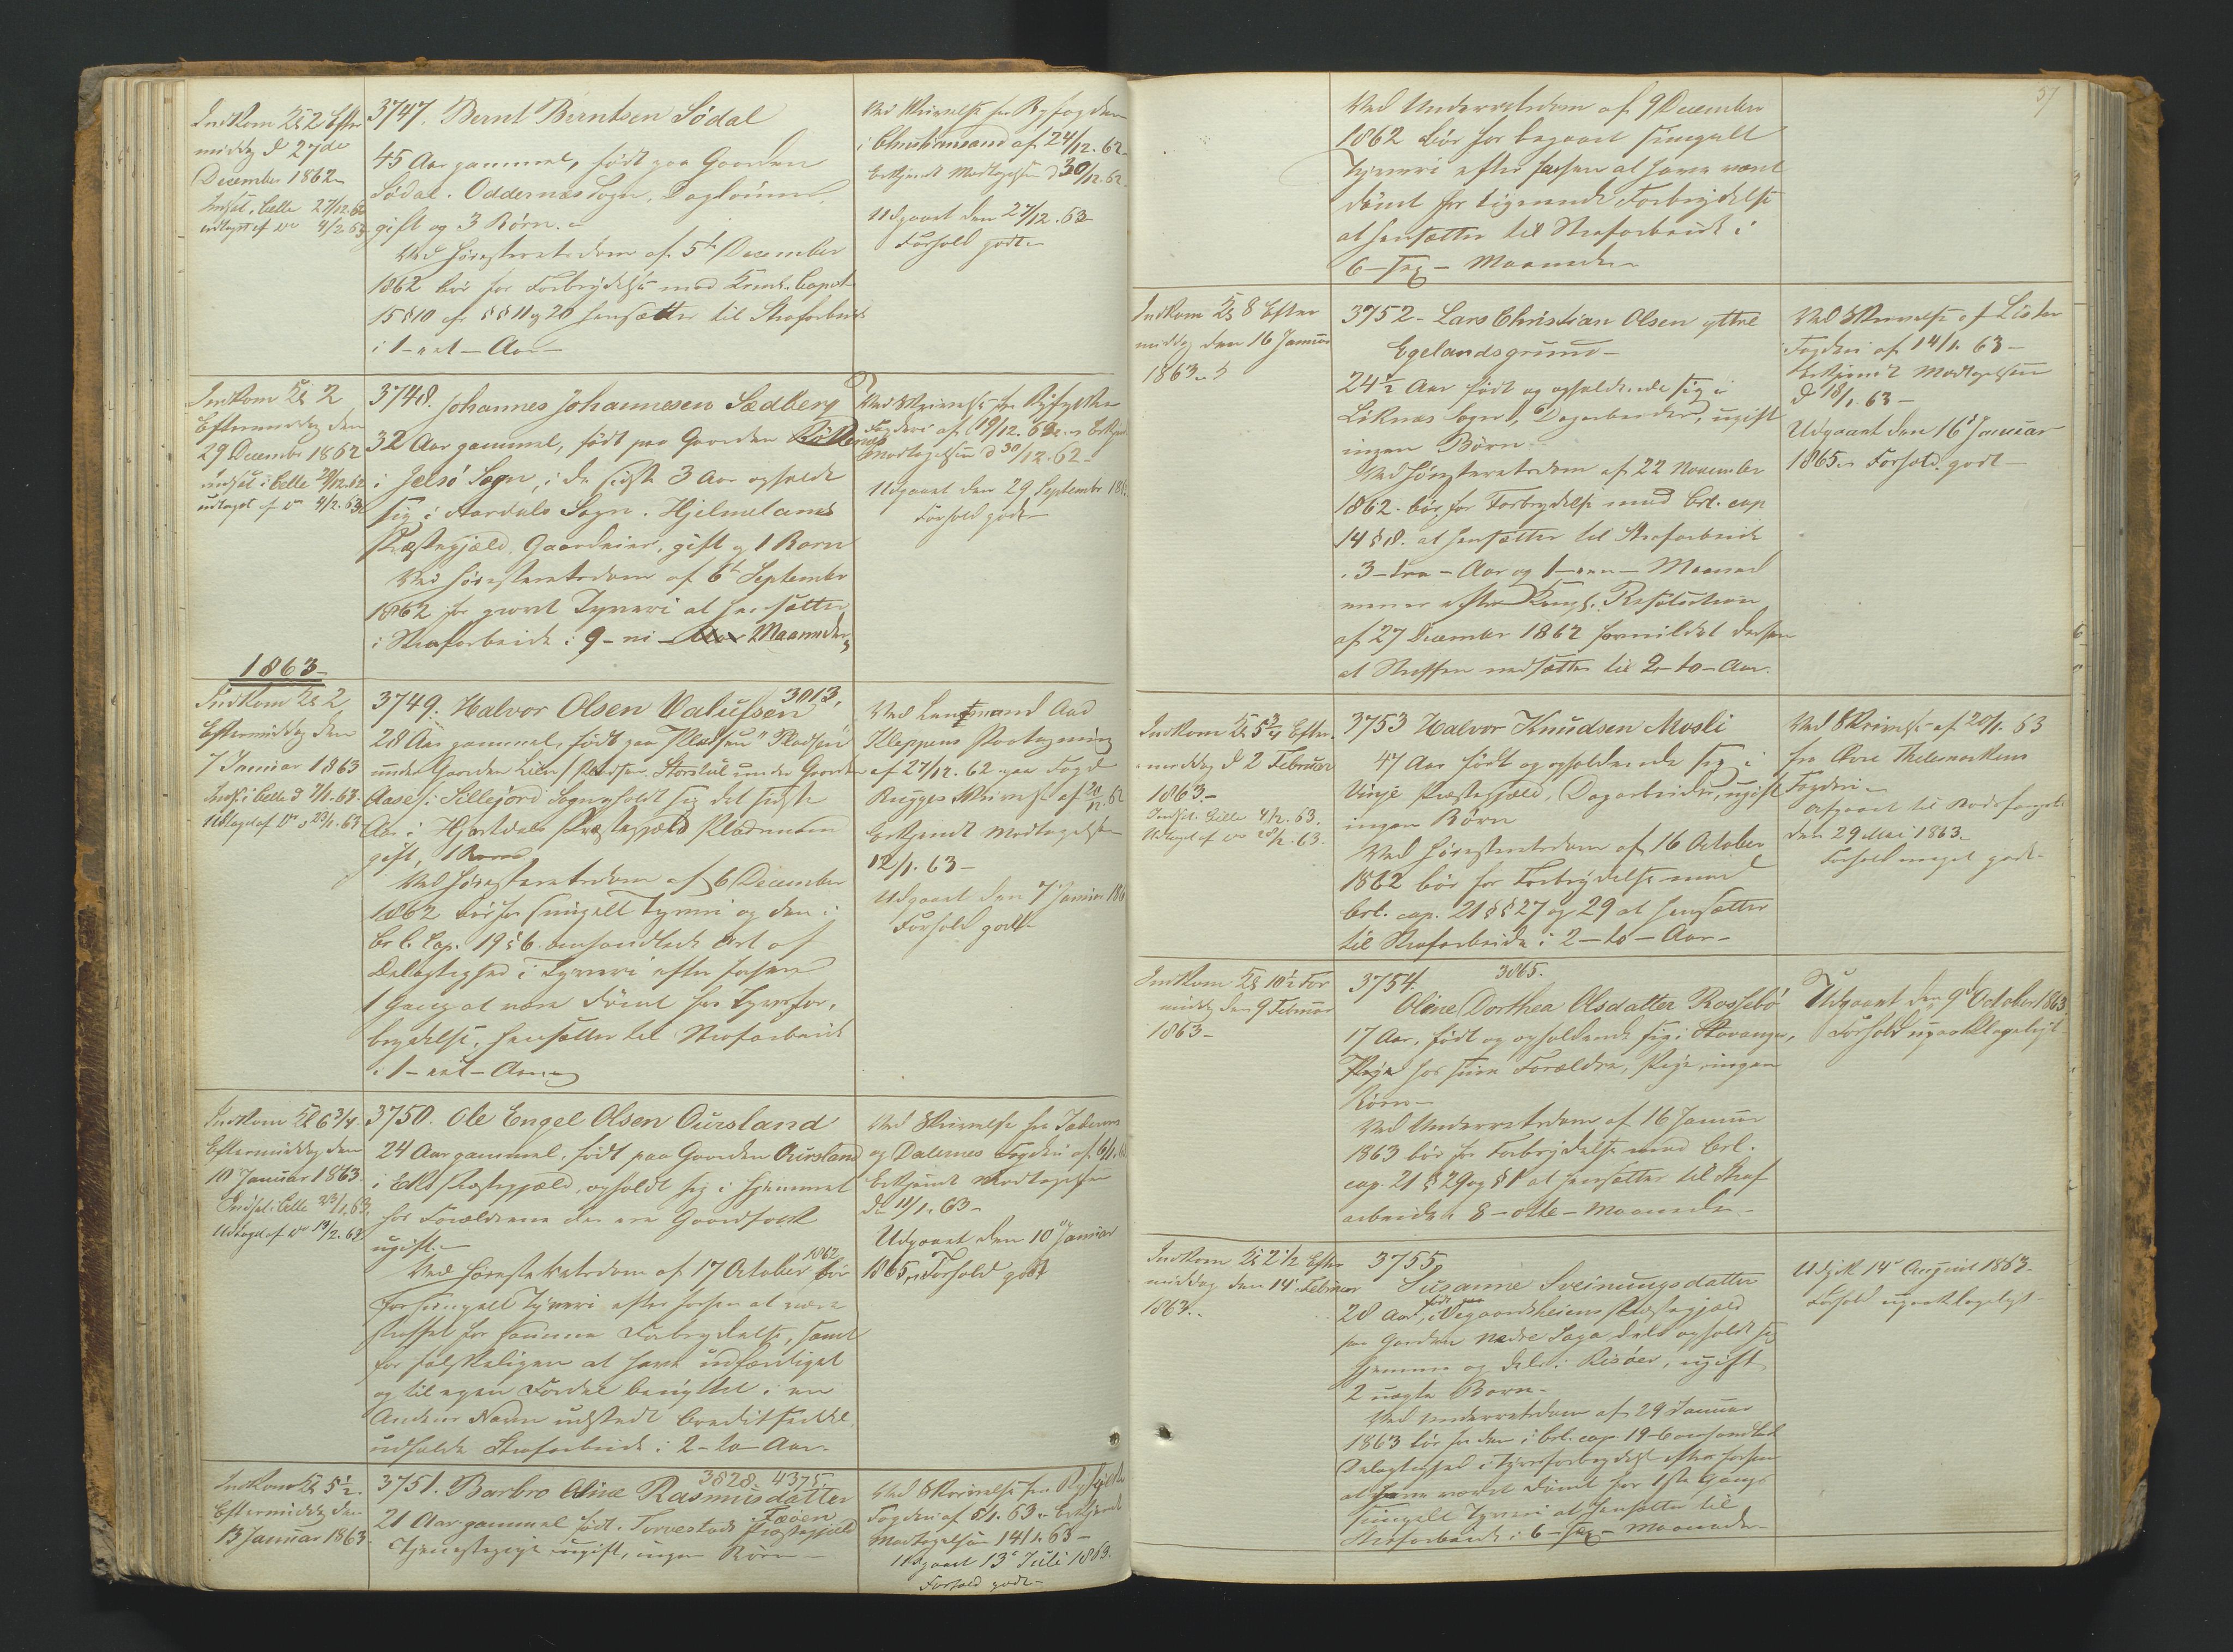 Indkom Kl 2 Efter
middg d 27de
December 1862
Indsat i Celle 27/12.62
udtaget af do 4/2.63
3747. Bernt Berntsen Södal
45 Aar gammel, født paa Gaarden
Södal. Oddernæs Sogn, Daglönner,
gift og 3 Börn.
Ved Höiesteretsdom af 5te December
1862 bör for Forbrydelse mod Criml. Capit
15 § 10 cfr §§ 11 og 20 hensættes til Strafarbeide
i 1 - eet - Aar -
Ved Skrivelse fra Byfogden
i Christiansand af 24/12.62.
Erkjendt Modtagelsen d 30/12.62.
Udgaaet den 27/12.63
Forhold godt
Indkom Kl 2
Eftermiddg den
29 December 1862
indsat i Celle 29/12.62
udtaget af do 4/2.63
3748. Johannes Johannesen Sædberg
32 Aar gammel, født paa Gaarden
i Jelsö Sogn, i de sidste 3 Aar opholdt
sig i Aardals Sogn. Hjelmelands
Præstegjæld, Gaardeier, gift og 1 Barn
Ved Höiesteretsdom af 6te September
1862 for grovt Tyveri at hensættes
i Strafarbeide i 9 - ni - Aar 2 Maaneder
Ved Skrivelse fra Ryfylke
Fogderi af 19/12.62. Erkjendt
Modtagelsen d 30/12.62
Udgaaet den 29 September 186
Forhold godt
1863
Indkom Kl 2
Eftermiddg den
7 Januar 1863
Inds. i Celle d 7/1.63.
Udtaget af do 23/1.63
3749. Halvor Olsen Valufsen 3013.
28 Aar gammel, født paa Pladsen
under Gaarden Lien Pladsen Storslul under Gaarden
Aase i Sillejord Sogn, opholdt sig det sidste
Aar i Hjertdals Præstegjæld Pladsmand
gift, 1 Barn
Ved Höiesteretsdom af 6 December
1862 bör for simpelt Tyveri og den i
Crl. Cap. 19 § 6. omhandlede Art af
Delagtighed i Tyveri efter forhen
1 Gang at være dömt for Tyvsfor.
brydelse, hensættes til Strafarbeide
i 1 - eet - Aar
Ved Lensmand Aad
Kleppens Paategning
af 27/12.62 paa Fogd
Rugges Skrivelse af 20/12.62
Erkjendt Modtagelsen
12/1.63 -
Udgaaet den 7 Januar 186
Forhold godt
Indkom Kl 6 3/4
Eftermiddg den
10 Januar 1863
Indsat i Celle 23/1.63.
Udtaget af do 13/2.63
3750. Ole Engel Olsen Oursland
24 Aar gammel, født paa Gaarden Oursland
i Ekts Præstegjæld, opholdt sig i Hjemmet
hos Forældrene der ere Gaardfolk
ugift.
Ved Höiesteretsdom af 17 October 1862 bör
for simpelt Tyveri efter forhen at være
straffet for samme Forbrydelse, samt
for falskeligen at have udfærdiget
og til egen Fordel benyttet i en
Andens Navn udstedt Creditseddel
udholde Strafarbeide i 2 - to - Aar.
Ved Skrivelse fra Jæderens
og Dalernes Fogderi af 6/1.
Erkjendt Modtagelsen
d. 11/1.63 -
Udgaaet den 10 Januar
1865. Forhold godt
Indkom Kl 5 1/2.
Eftermiddg den
13 Januar 1863.
3828. 4375.
3751. Barbro Oline Rasmusdatter
Fæöen
21 Aar gammel født i Torvestads Præstegjæld
Tjenestepige ugift, ingen Börn -
Ved Skrivelse fra Ryfylke
Fogderi af 5/1.63. Erkjendt
Modtagelsen 14/1.63 -
Udgaaet 13de Juli 1863.
Forhold godt -
57
Ved Underretsdom af 9 December
1862 bör for begaaet simpelt
Tyveri efter forhen at have været
dömt for lignende Forbrydelse
at hensættes til Strafarbeide i
6 - sex - Maaneder
Indkom Kl 8 Efter
middg den 16 Januar
1863
3752 - Lars Christian Olsen yttre
Egelandsgrund -
24 1/2 Aar født og opholdende sig i
Liknæs Sogn, Dagarbeider, ugift
ingen Börn
Ved Höiesteretsdom af 22 November
1862 - bör for Forbrydelse mod Crl. cap
14 § 18. at hensættes til Strafarbeide
i 3 - tre - Aar og 1 - een - Maaned
men er efter Kongl. Resolution
af 27 December 1862 formildet derhen
at Straffen nedsættes til 2 - to - Aar.
Ved Skrivelse af Lister
Fogderi af 14/1.63 -
Erkjendt Modtagelsen
d 18/1.63 -
Udgaaet den 16 Januar
1865. Forhold godt -
Indkom Kl 5 3/4 Efter.
middg d 2 Februar
1863. -
Indsat i Celle 4/2.63.
Udtaget af do 28/2.63.
3753 Halvor Knudsen Mosli
47 Aar født og opholdende sig i
Vinje Præstegjæld, Dagarbeider, ugift
ingen Börn
Ved Höiesteretsdom af 16 October
1862 bör for Forbrydelse mod
Crl. cap. 21 §§ 27 og 29 at hensættes
til Strafarbeide i 2 - to - Aar -
Ved Skrivelse af 20/1.63
fra Övre Thelemarkens
Fogderi -
Afgaaet til Bodsfængslet
den 29 Mai 1863.
Forhold meget godt -
Indkom Kl 10 1/2 For
middg den 9 Februar
1863 -
3754. 3865.
Oline Dorthea Olsdatter Rossebö
17 Aar, født og opholdende sig i Stavanger,
Pige hos sine Forældre, Pige, ingen
Börn -
Ved Underretsdom af 16 Januar
1863 bör for Forbrydelse mod Crl.
cap. 21 § 29 og § 1 at hensættes til Straf
arbeide i 8 - otte - Maaneder -
Udgaaet den 9de October 1863.
Forhold upaaklageligt
Indkom Kl 2 1/2 Efter
middag den 14 Februar
1863.
3755
Susanne Sveinungsdatter
28 Aar, født paa i Vegaardsheiens Præstegjæld
paa Gaarden Nedre Saga dels opholdt sig
hjemme og dels i Risöer, ugift
2 uægte Börn -
Ved Underretsdom af 29 Januar
1863 bör for den i Crl. cap. 19 - 6 omhandlede
Delagtighed i Tyvsforbrydelse efter forhen
at have været dömt for 1ste Gangs
simpelt Tyveri at hensættes til
Strafarbeide i 6 - sex - Maaneder -
Udgik 14 August 1863 -
Forhold upaaklageligt -